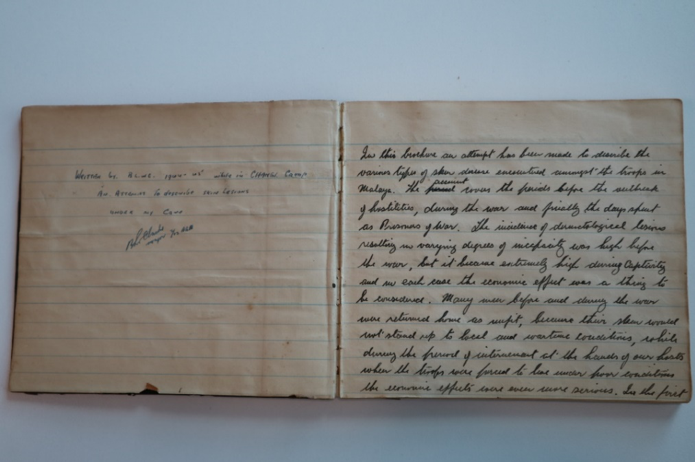 WRITTEN by while in CHANGI CAMP
AN ATTEMPT TO DESCRIBE SKIN LESIONS
UNDER MY CARE
In this brochure an attempt has been made to describe the
various types of skin disease encountered amongst the troops in
Malaya. The account covers the periods before the outbreak
of hostilities, during the war and finally the days spent
as Prisoners of War. The incidence of dermatological lesions
resulting in varying degrees of incapacity was high before
the war, but it became extremely high during Captivity
and in each case the economic effect was a thing to
be considered. Many men before and during the war
were returned home as unfit, because their skin would
not stand up to local and wartime conditions, while
during the period of internment at the hands of our hosts
when the troops were forced to live under poor conditions
the economic effects were even more serious. In the first